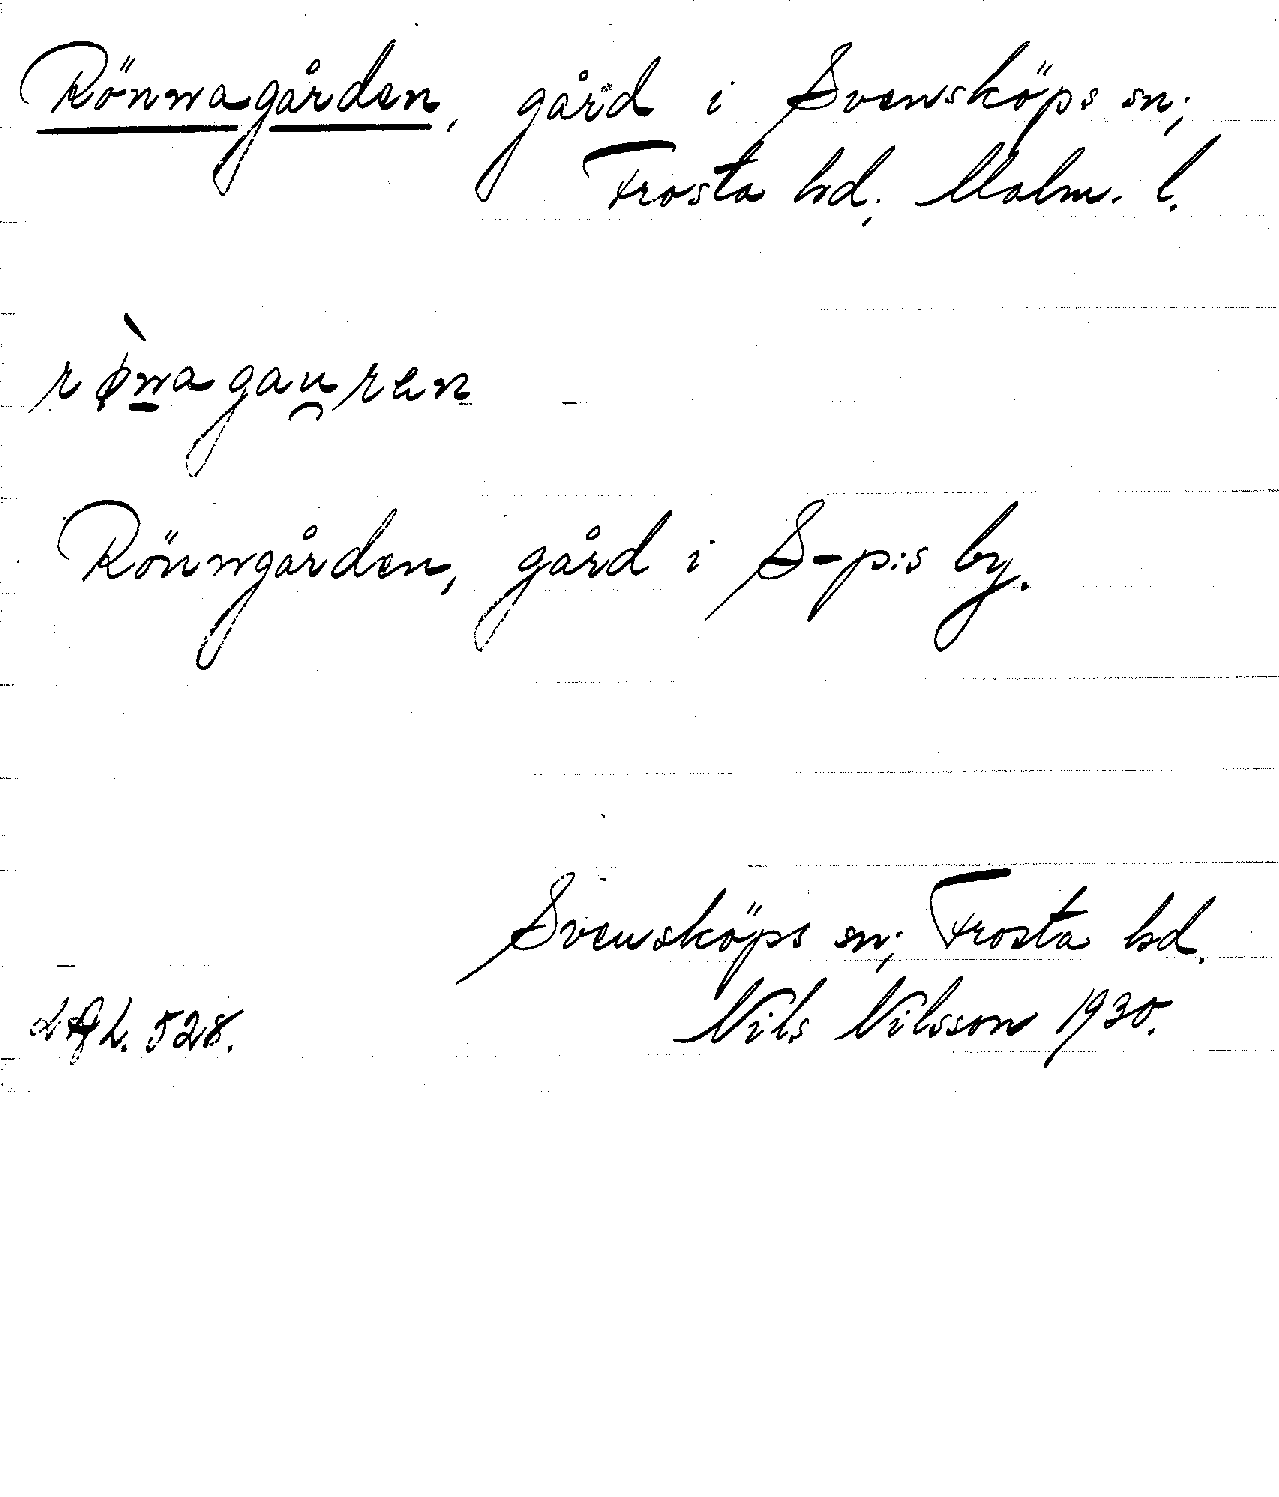 Rönnagården, gård i Svensköps sn;
Frosta hd, Malm. l.
rø̀n̲agau̯ren
Rönngården, gård i S-p:s by.
Svensköps sn; Frosta hd.
528. Nils Nilsson 1930.